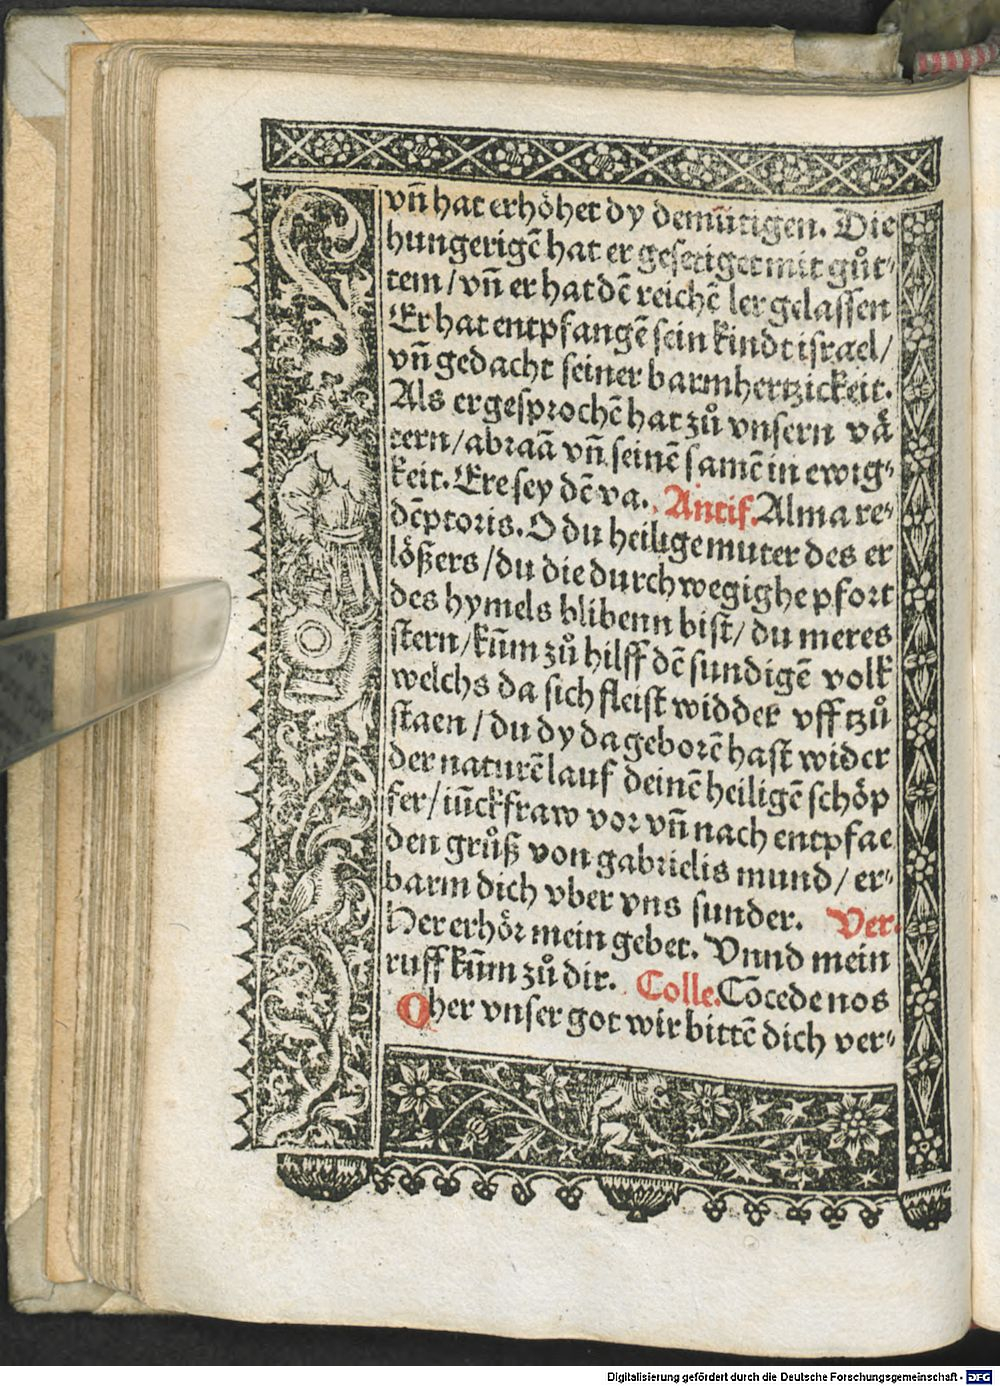 vn̄ hat erhöhet dy demūtigen. Die
hungerigē hat er gesetiget mit gůt⸗
tem/vn̄ er hat dē reichē ler gelassen
Er hat entpfangē sein kindt israel/
vn̄ gedacht seiner barmhertzickeit.
Als er gesprochē hat zů vnsern vå
tern/abraā vn̄ seinē samē in ewig⸗
keit. Ere sey dē va. Antif. Alma re⸗
dēptoris. O du heilige muter des er
lößers/du die durchwegighe pfort
des hymels blibenn bist/ du meres
stern/kūm zů hilff dē sundigē volk
welchs da sich fleist widder vff tzů
staen/du dy da geborē hast wider
der naturē lauf deinē heiligē schöp
fer/iūckfraw vor vn̄ nach entpfae
den grůß von gabrielis mund/ er⸗
barm dich vber vns sunder. Ver.
Her erhör mein gebet. Vnnd mein
ruff kūm zů dir. Colle. Cōcede nos
O her vnser got wir bittē dich ver⸗
Digitalisierung gefördert durch die Deutsche Forschungsgemeinschaft - DFG